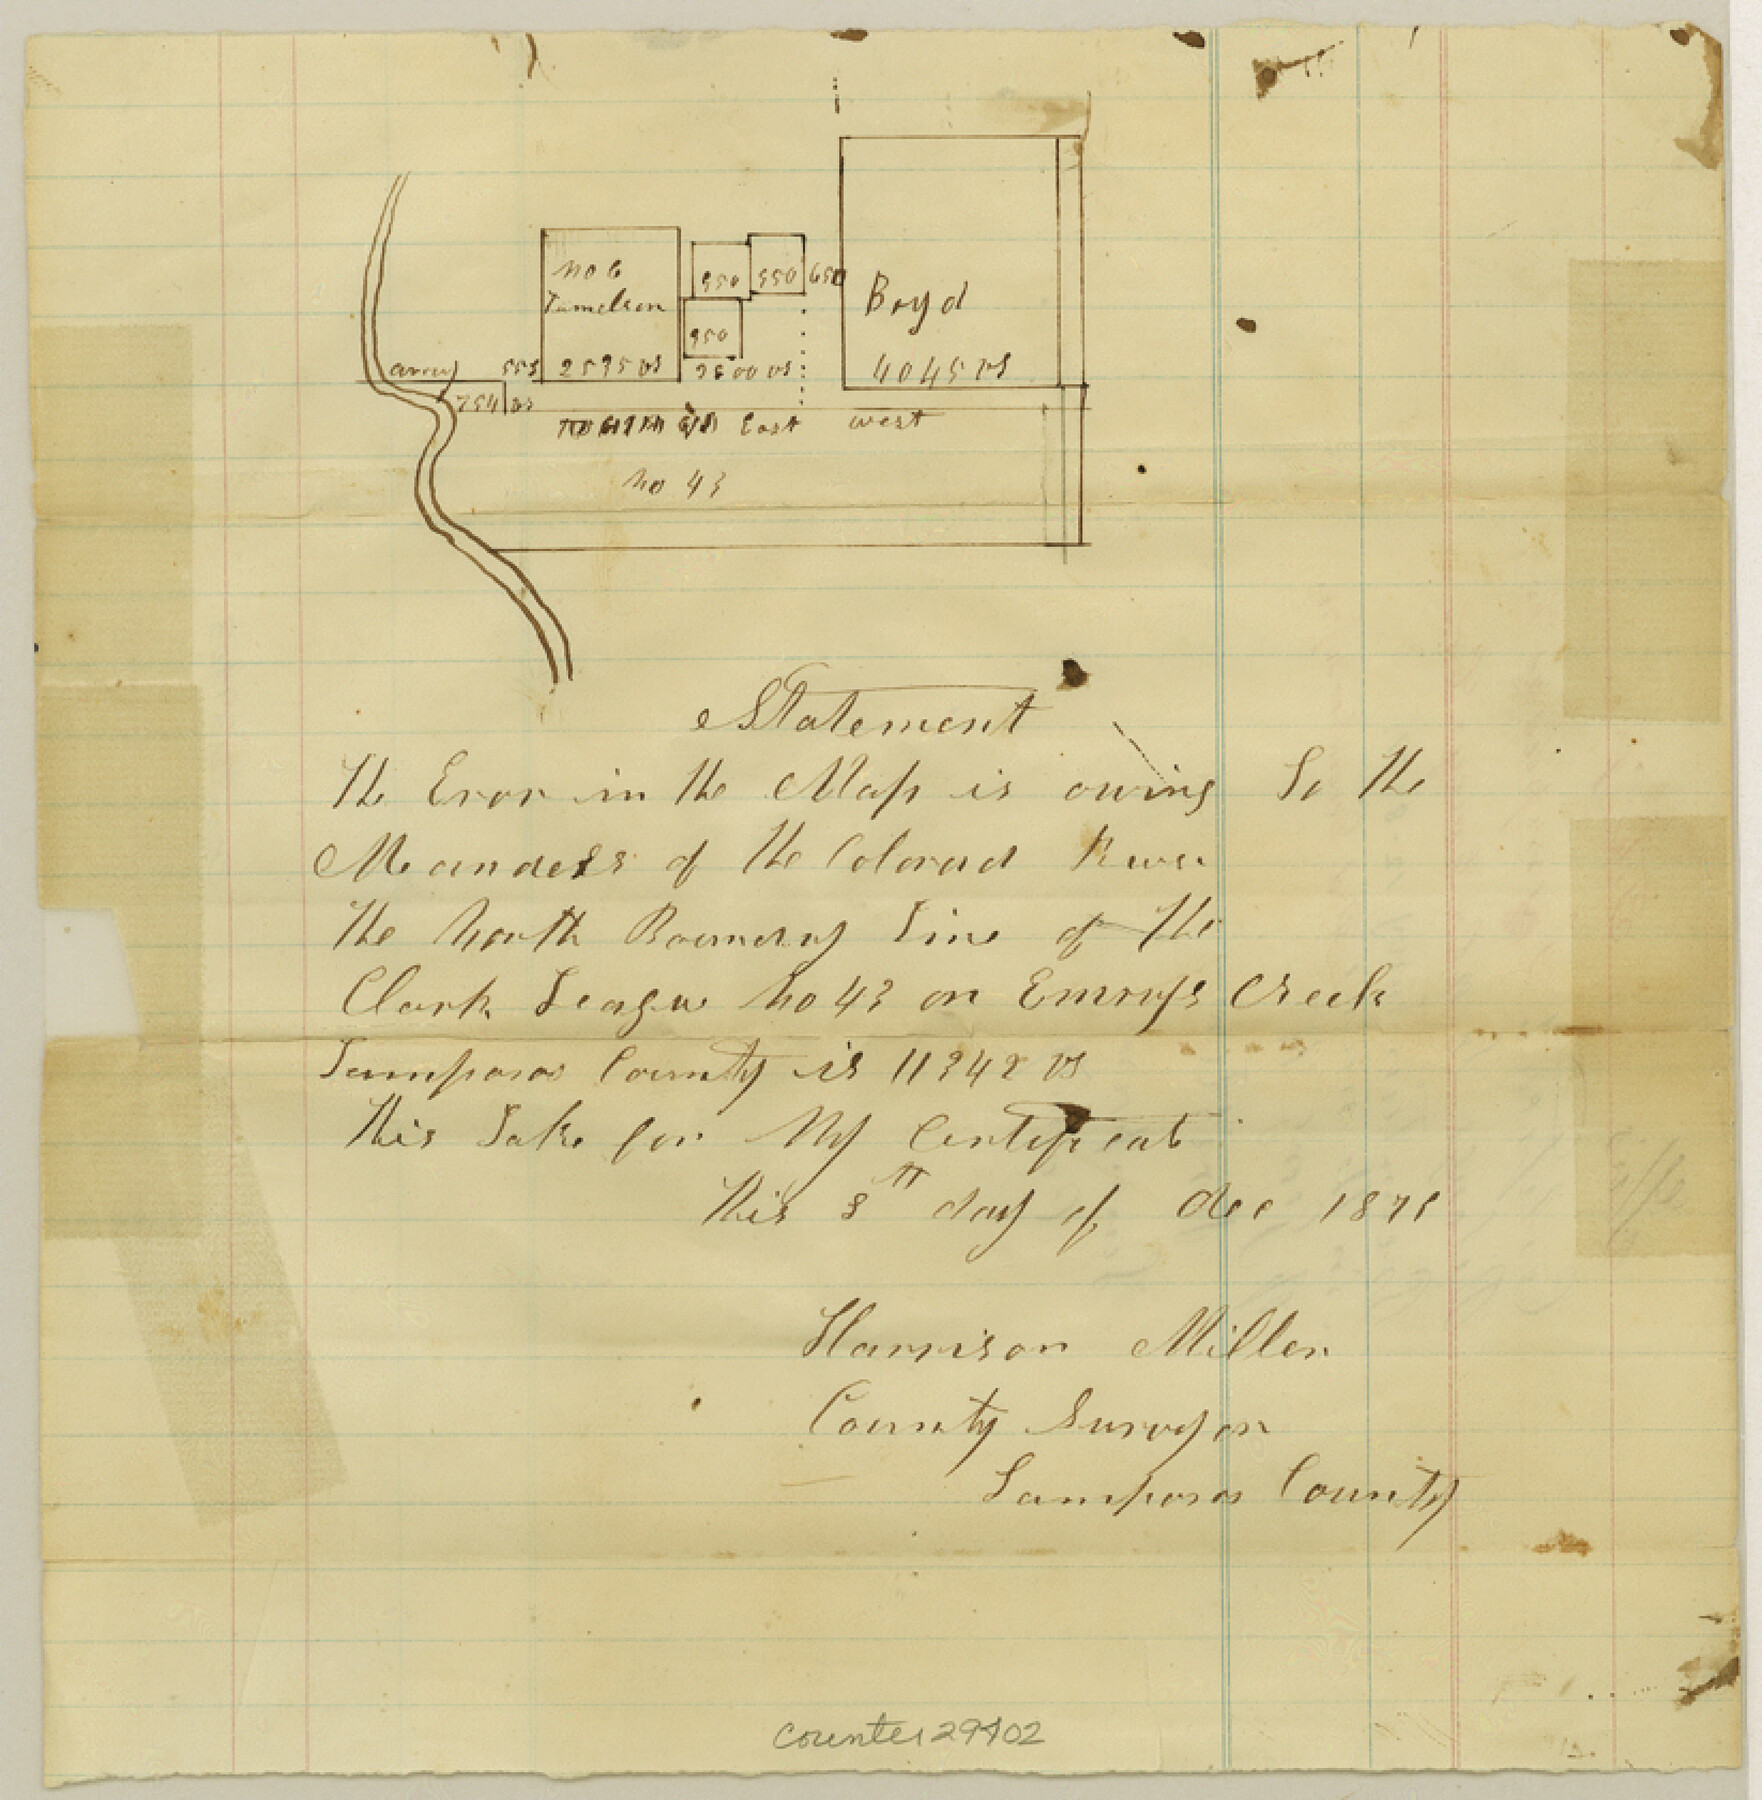 no 6
Tumelson
2595 vs
950
550
650
950
2600 vs
553
754 vs
Boyd
4045 vs
East west
no 43
Statement
The Eror in the Map is owing To the
Meanders of the Colorad River
The North Boundry Line of the
Clark League No 43 on Emrys Creek
Lampasas County is 11342 vs
This Take for My Certificat
This 8th day of Dec 187
Harrison Miller
County Surveyor
Lampasas County
counter 29402